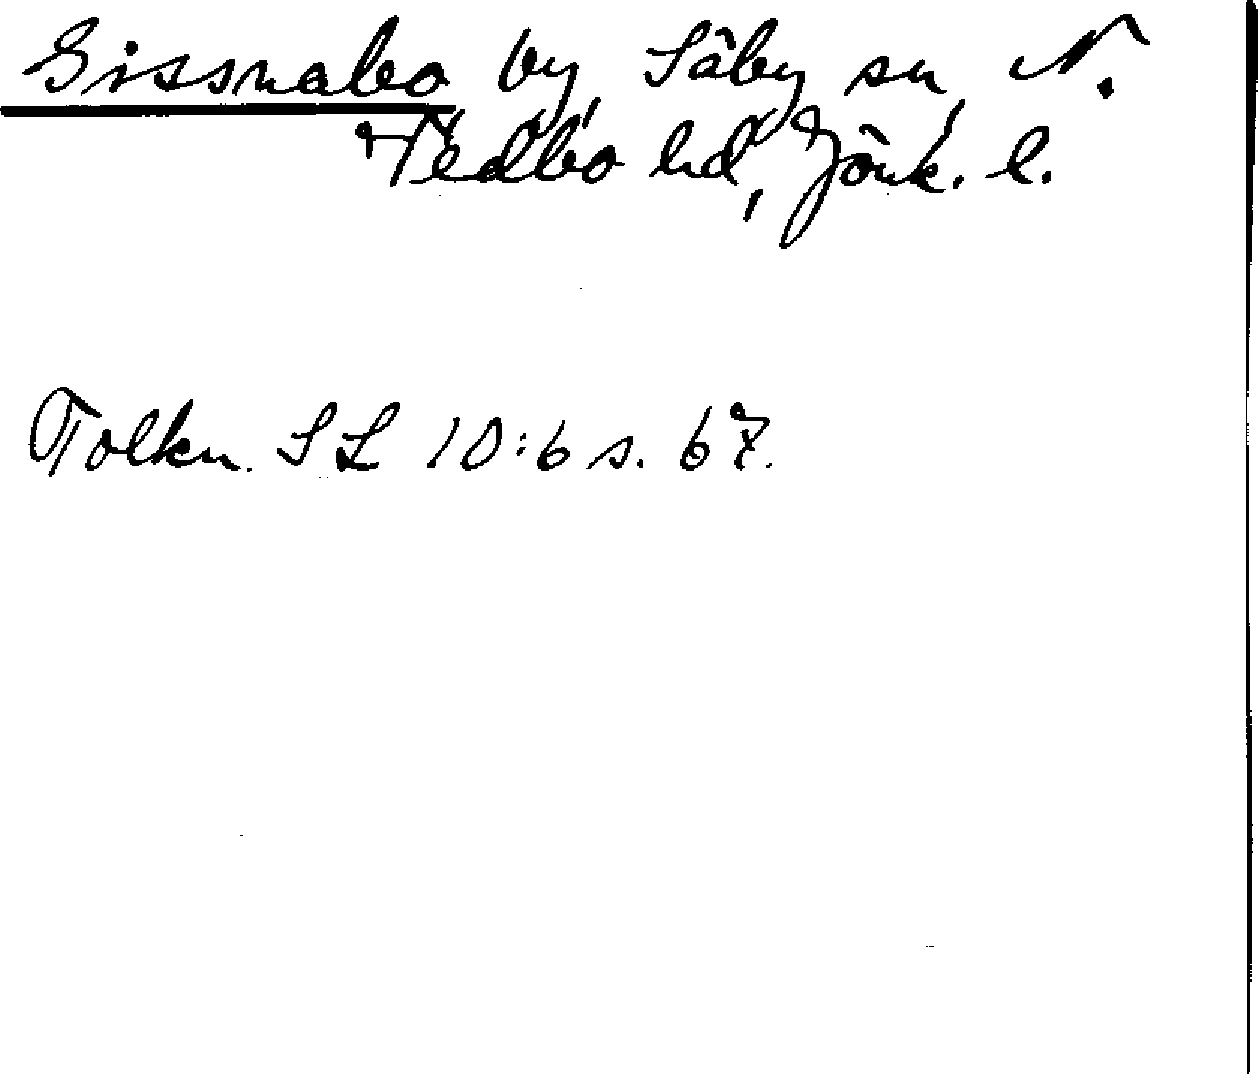 Gissnabo by, Säby sn, N.
Vedbo hd, Jönk. l.
Tolkn. SL 10:6 s. 67.